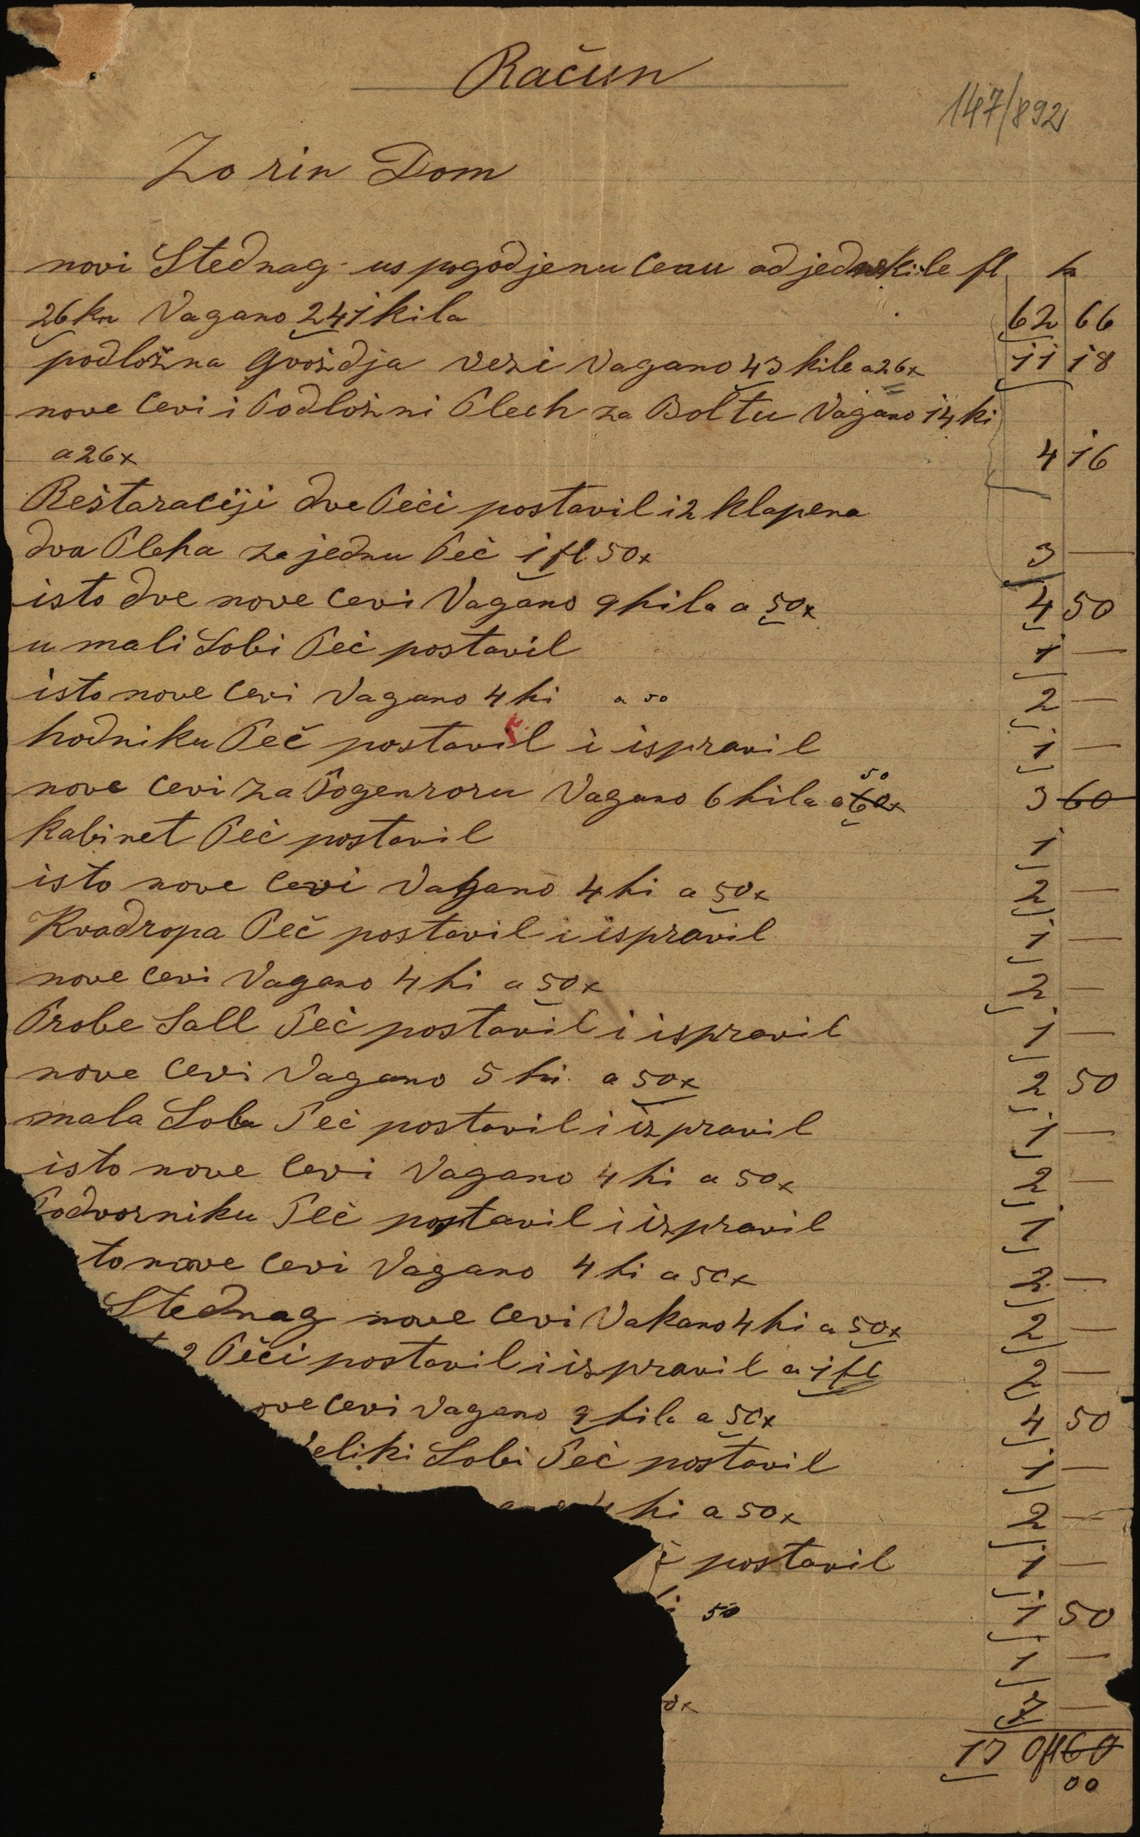 Račun
147/892
Zorin Dom
novi Stednag us pogodjenu Cenu od jedne kile fl k
26 kn Vagano 241 kila 62 66
podložna gvozdja vezi Vagano 43 kile a 26x 11 18
nove Cevi i Podložni Plech za Boltu Vagano 14 ki
a 26x 4 16
Reštaraciji dve Peći postavil i 2 klapena
dva Pleha za jednu Peč 1 fl 50x 3 —
isto dve nove Cevi Vagano 9 kila a 50x 4 50
u mali Sobi Peć postavil 1 —
isto nove Cevi Vagano 4 ki a 50 2 —
hodniku Peč postavil i ispravil 1 —
nove Cevi za Pogenroru Vagano 6 kila a 60x 50 3 60
Kabinet Peć postavil 1
isto nove Cevi Vagano 4 ki a 50x 2 —
Kvadropa Peč postavil i ispravil 1 —
nove Cevi Vagano 4 ki a 50x 2 —
Probe Sall Peć postavil i ispravil 1 —
nove Cevi Vagano 5 ki a 50x 2 50
mala Soba Peć postavil i izpravil 1 —
isto nove Cevi Vagano 4 ki a 50x 2 —
Podvorniku Peć postavil i izpravil 1
to nove Cevi Vagano 4 ki a 50x 2 —
Stednag nove Cevi Vakano 4 ki a 50x 2 —
2 Peči postavil i izpravil a 1 fl 2 —
ove Cevi Vagano 9 kila a 50x 4 50
eliki Sobi Peć postavil 1 —
4 ki a 50x 2 —
postavil 1 —
50 1 50
1 —
0x —
13 0fl 60
00